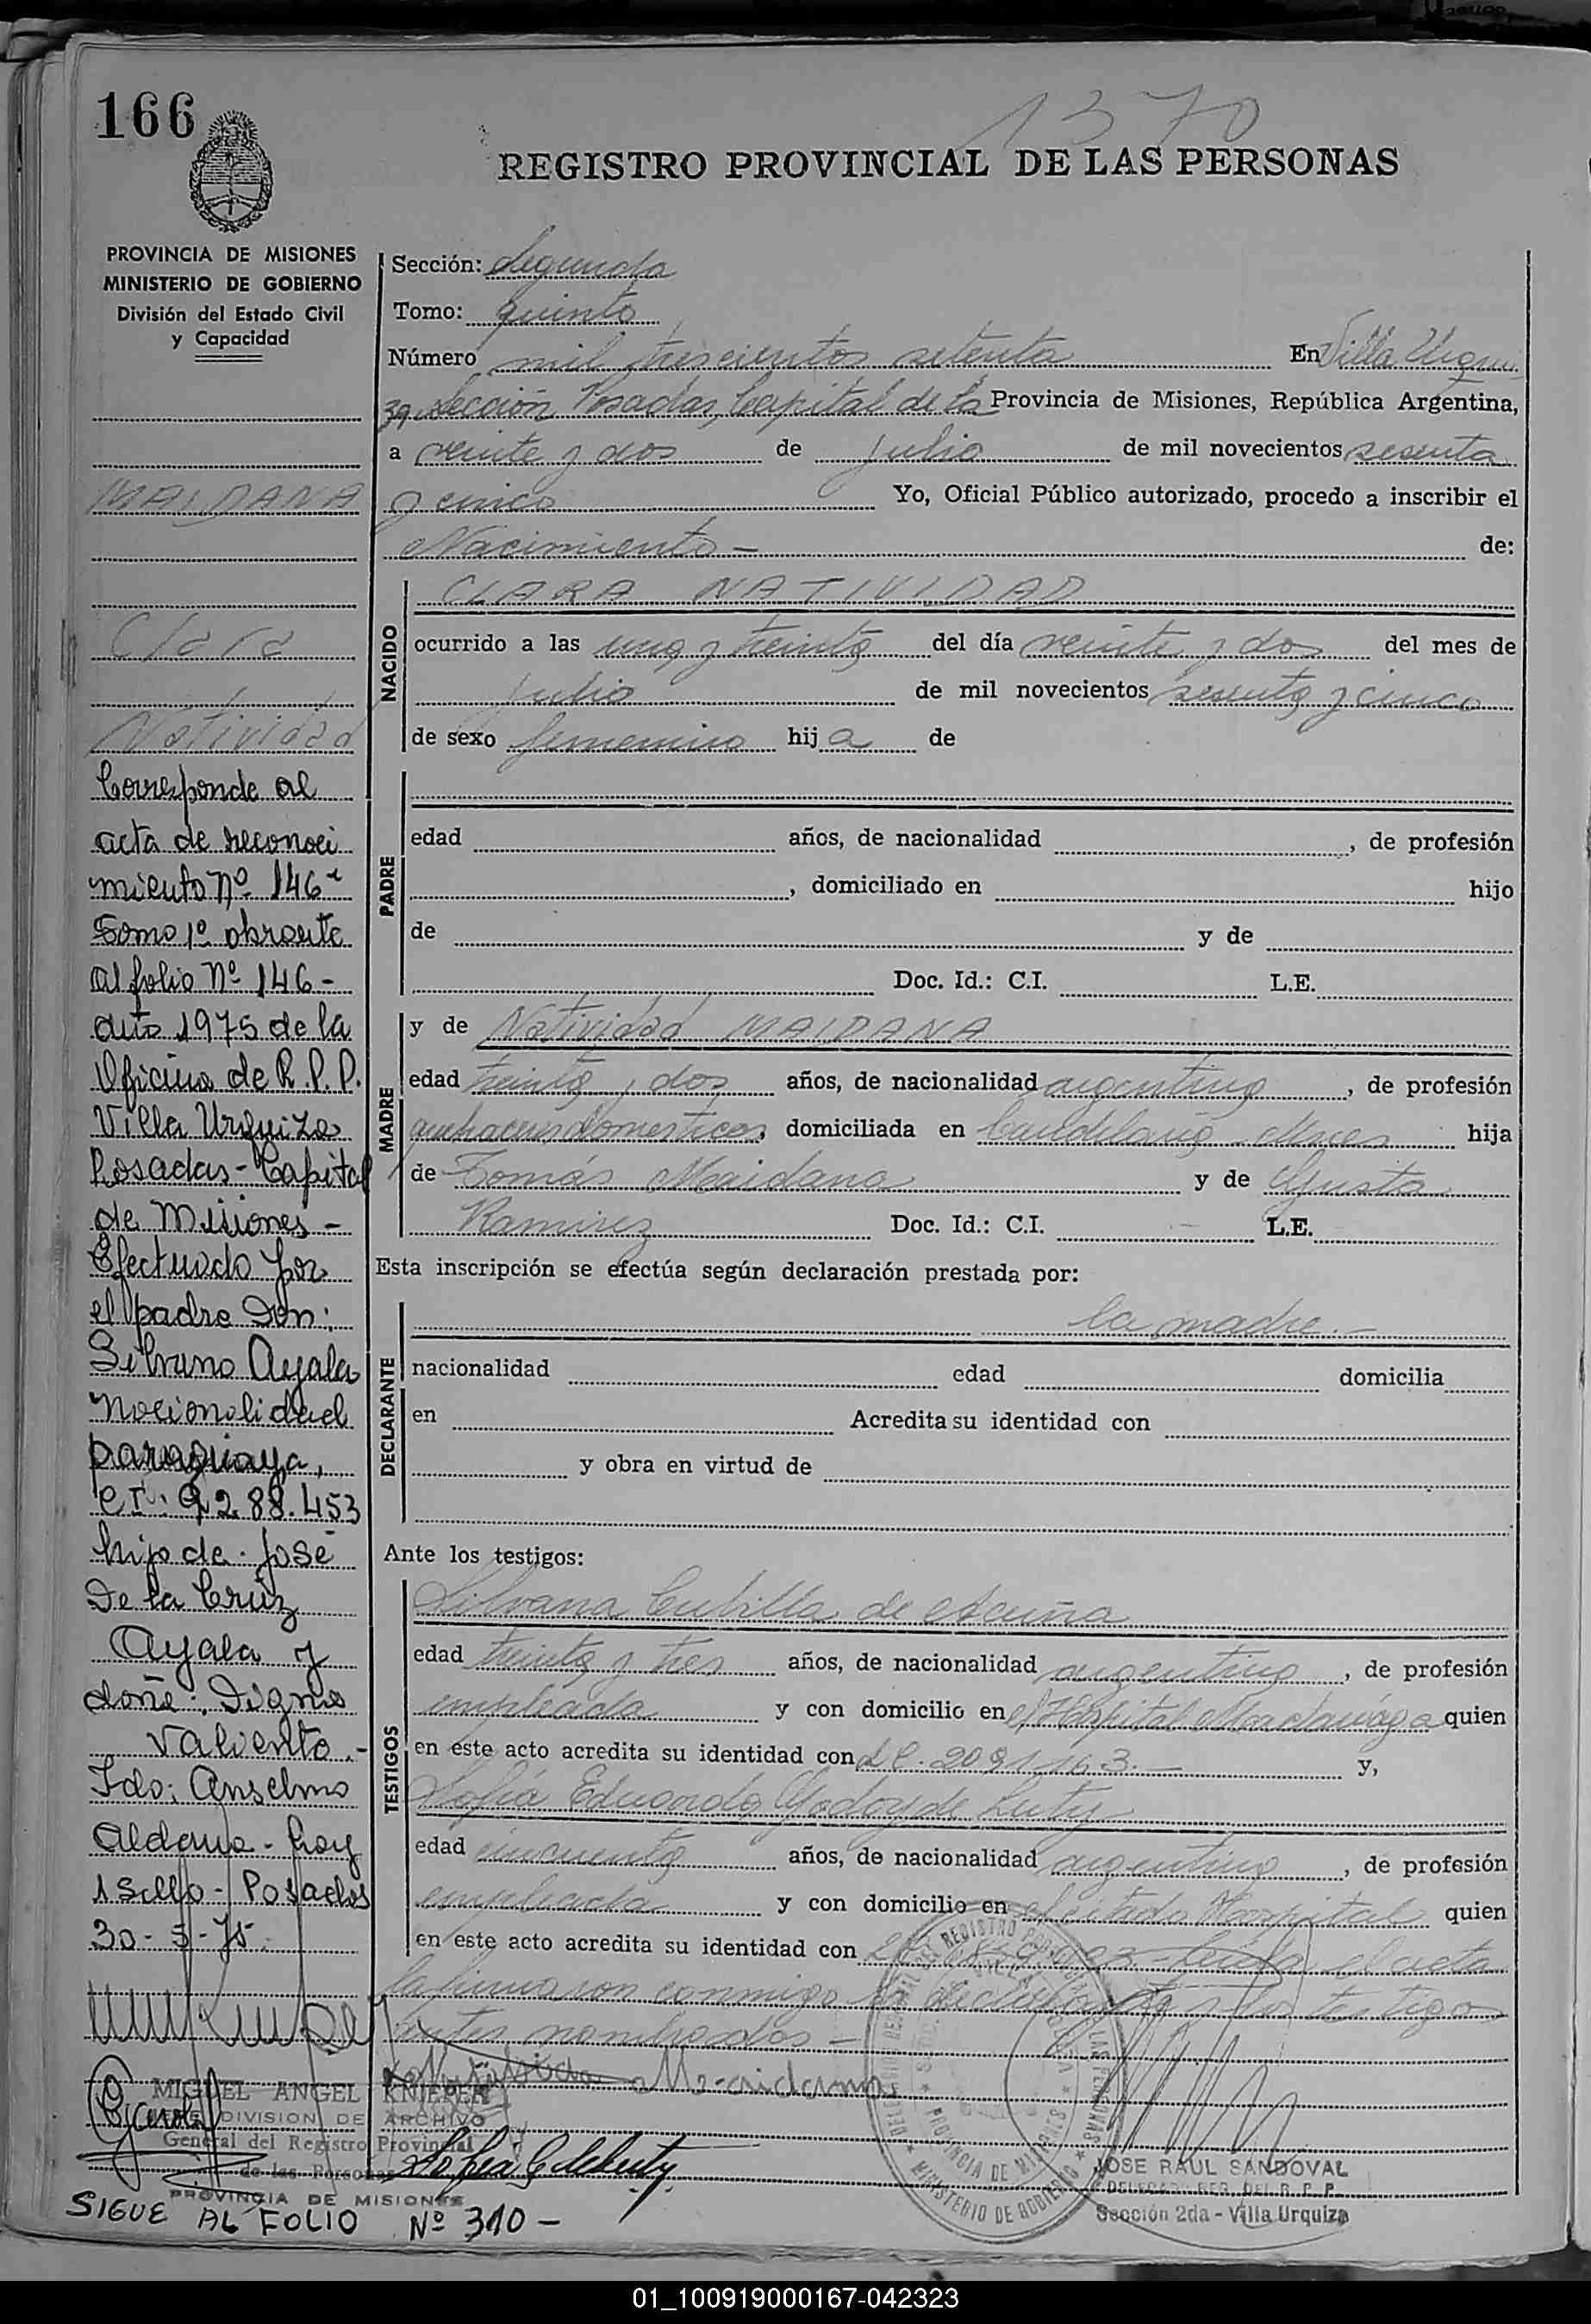 166
1370
REGISTRO PROVINCIAL DE LAS PERSONAS
PROVINCIA DE MISIONES
MINISTERIO DE GOBIERNO
División del Estado Civil
y Capacidad
MAIDANA
Clara
Natividad
Corresponde al
acta de reconoci
miento Nº 146
Tomo 1º obrante
al folio Nº 146-
año 1975 de la
Oficina de R.P.P.
Villa Urquiza
Posadas-Capital
de Misiones-
Efectuado por
el padre Don:
Silvano Ayala
nacionalidad
paraguaya,
CI: 9288.453
hijo de José
De la Cruz
Ayala y
doña: Digna
Valiente.-
Fdo: Anselmo
Aldana- hay
1 sello- Posadas
30-5-75.
Sección: Segunda
Tomo: quinto
Número mil trescientos setenta En Villa Urqui
za Sección Posadas, Capital de la Provincia de Misiones, República Argentina,
a veinte y dos de Julio de mil novecientos sesenta
y cinco Yo, Oficial Público autorizado, procedo a inscribir el
Nacimiento - de:
NACIDO
CLARA NATIVIDAD
ocurrido a las una y treinta del día veinte y dos del mes de
Julio de mil novecientos sesenta y cinco
de sexo femenino hija de
PADRE
edad años, de nacionalidad , de profesión
, domiciliado en hijo
de y de
Doc. Id.: C.I. L.E.
MADRE
y de Natividad MAIDANA
edad treinta y dos años, de nacionalidad argentina , de profesión
quehaceres domesticos, domiciliada en Candelaria - Mnes hija
de Tomás Maidana y de Gusta
Ramirez Doc. Id.: C.I. - L.E.
Esta inscripción se efectúa según declaración prestada por:
DECLARANTE
la madre.-
nacionalidad edad domicilia
en Acredita su identidad con
y obra en virtud de
Ante los testigos:
TESTIGOS
Silvana Cubilla de Acuña
edad treinta y tres años, de nacionalidad argentina , de profesión
empleada y con domicilio en el Hospital Madariaga quien
en este acto acredita su identidad con L.C. 2091163.- y,
Sofía Eduarda Godoy de Luty
edad cincuenta años, de nacionalidad argentina , de profesión
empleada y con domicilio en el citado Hospital quien
en este acto acredita su identidad con Leida el acta
la firmaron conmigo la declarante y los testigos
antes nombrados -
Natividad Maidana
REGISTRO PROVINCIAL DE LAS PERSONAS
PROVINCIA DE MISIONES
MINISTERIO DE GOBIERNO
MIGUEL ANGEL KNIEPER
JEFE DIVISION DE ARCHIVO
General del Registro Provincial
de las Personas
PROVINCIA DE MISIONES
JOSE RAUL SANDOVAL
DELEGADO REG. DEL R. P. P.
Sección 2da - Villa Urquiza
SIGUE AL FOLIO Nº 310 -
01_100919000167-042323